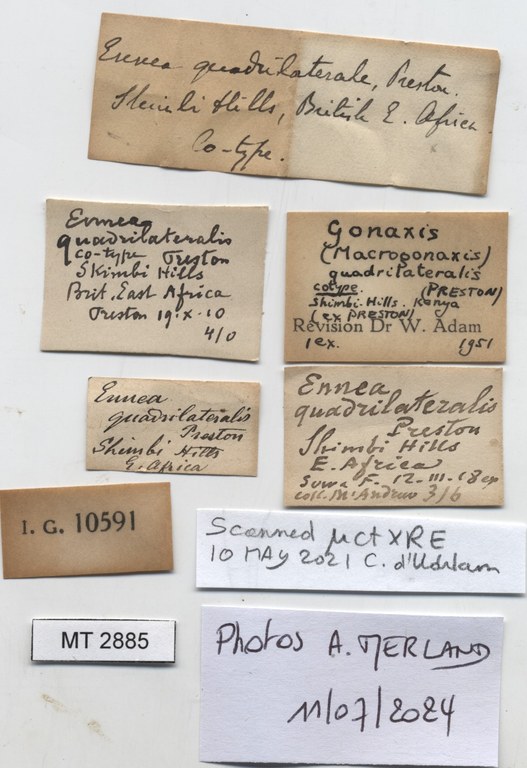 Ennea quadrilaterale, Preston.
Shimbi Hills, British E. Africa.
Co-type.
Ennea
quadrilateralis
co-type Preston
Skimbi Hills
Brit. East Africa
Preston 19.X.10
4/0
Gonaxis
(Macrogonaxis)
quadrilateralis
cotype. (PRESTON)
Shimbi-Hills. Kenya
(ex PRESTON)
Revision Dr W. Adam
1 ex. 1951
Ennea
quadrilateralis
Preston
Shimbi Hills
E. Africa
Ennea
quadrilateralis
Preston
Shimbi Hills
E. Africa
F. 12-III-18
coll. 3/6
I. G. 10591
Scanned µct XRE
10 MAY 2021 C. d'Udekem
MT 2885
Photos A. MERLAND
11/07/2024